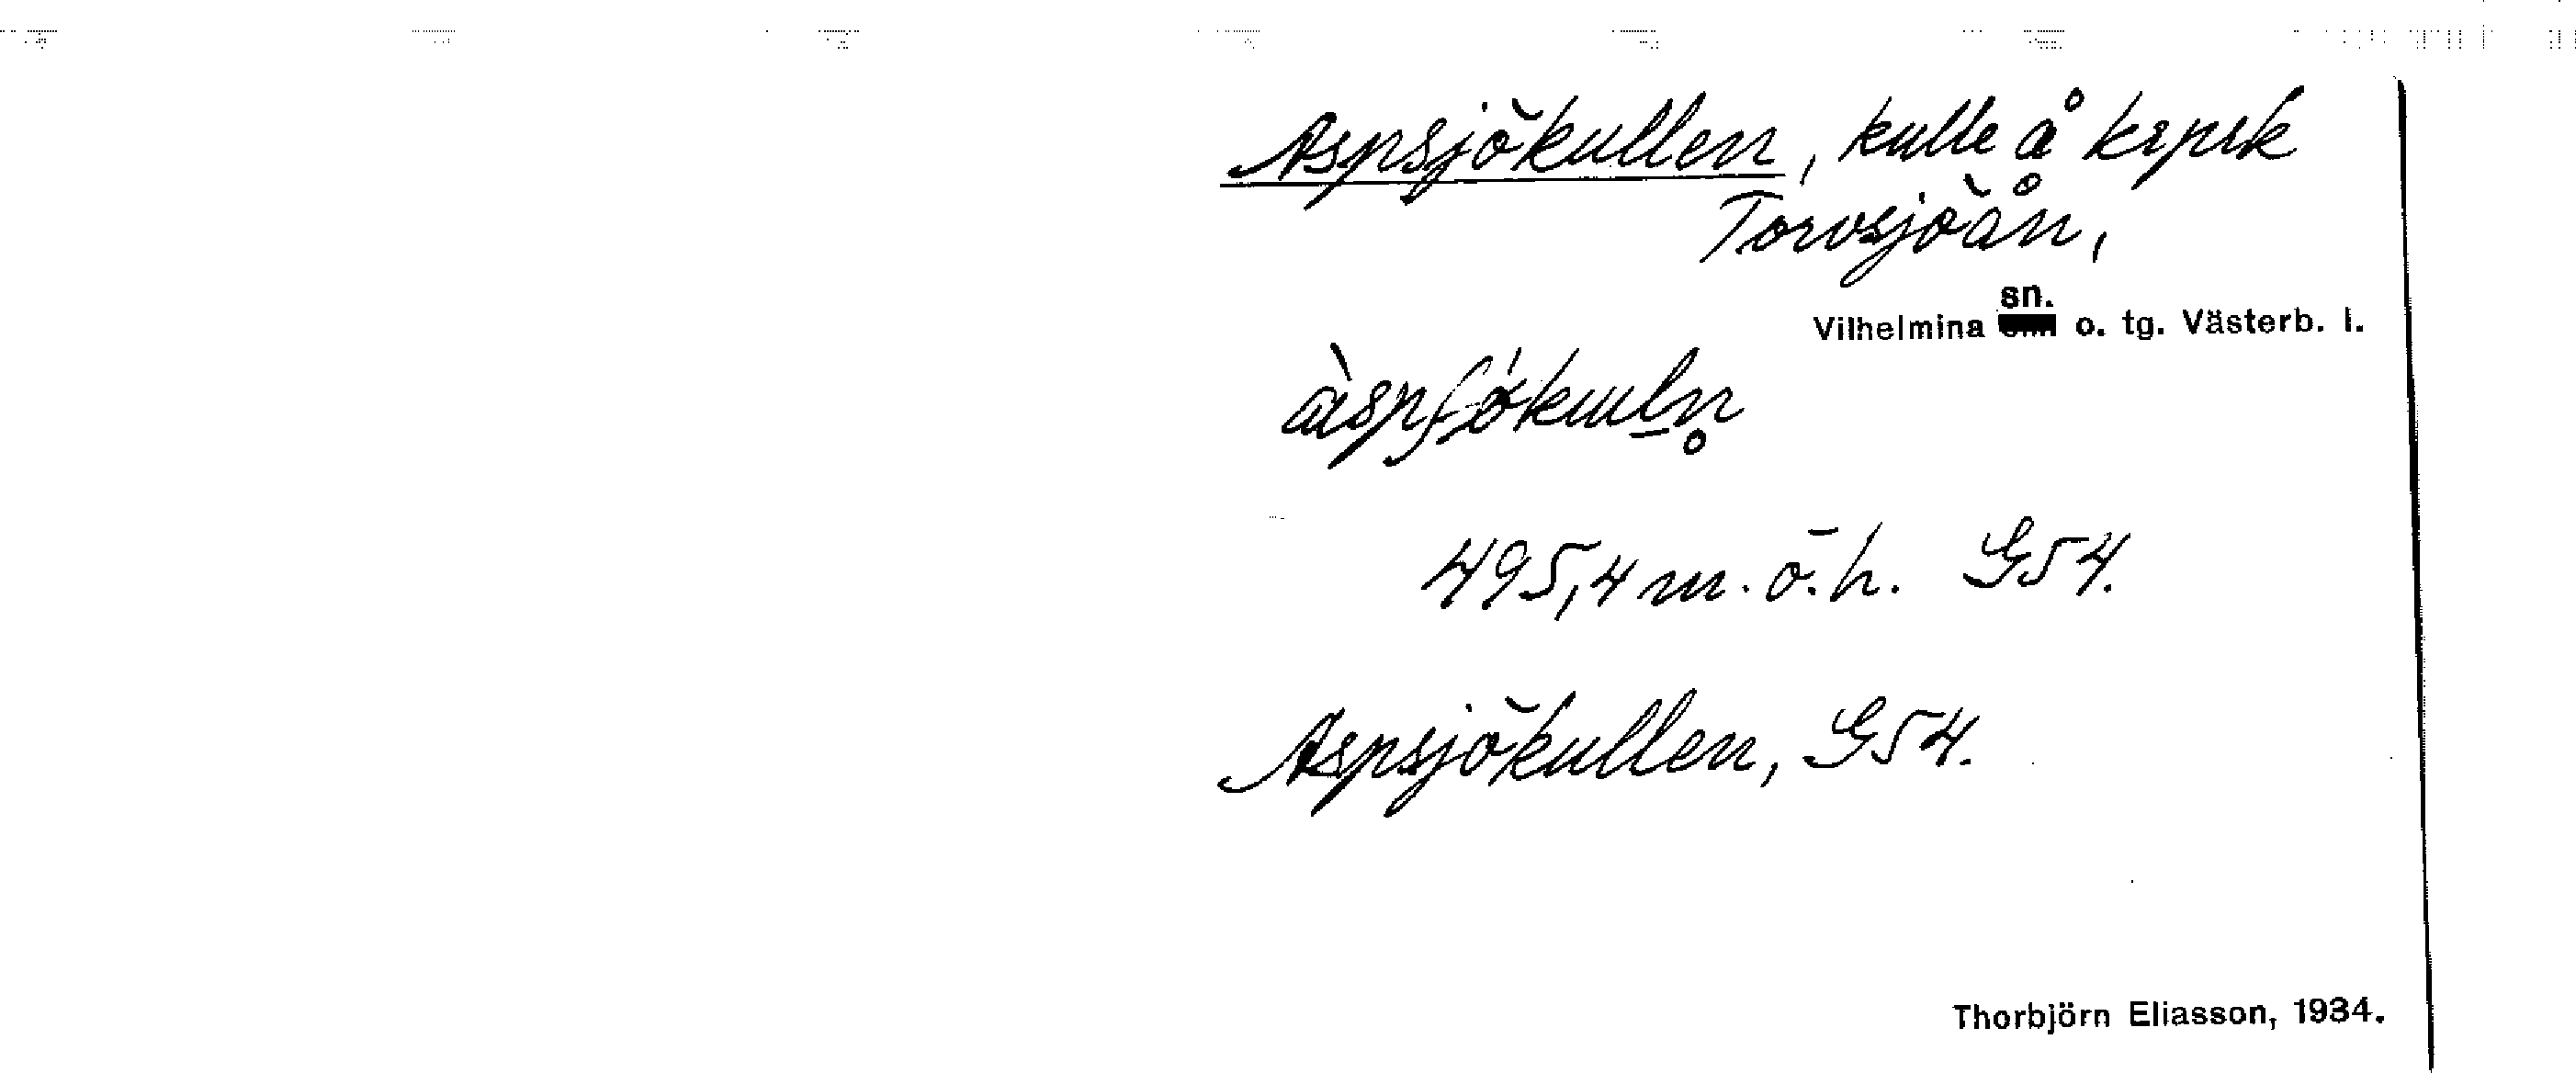 Aspsjökullen, kulle å krpsk
Torvsjöån,
sn.
Vilhelmina o. tg. Västerb. l.
495,4 m. ö. h. G54.
Aspsjökullen, G54.
Thorbjörn Eliasson, 1934.